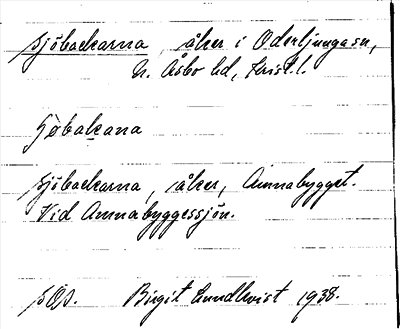 Sjöbackarna, åker i Oderljunga sn,
N. Åsbo hd, Krist. l.
Sjöbakana
Sjöbackarna, åker, Aminabygget.
Vid Aminabyggessjön.
Birgit Lundkvist 1938.